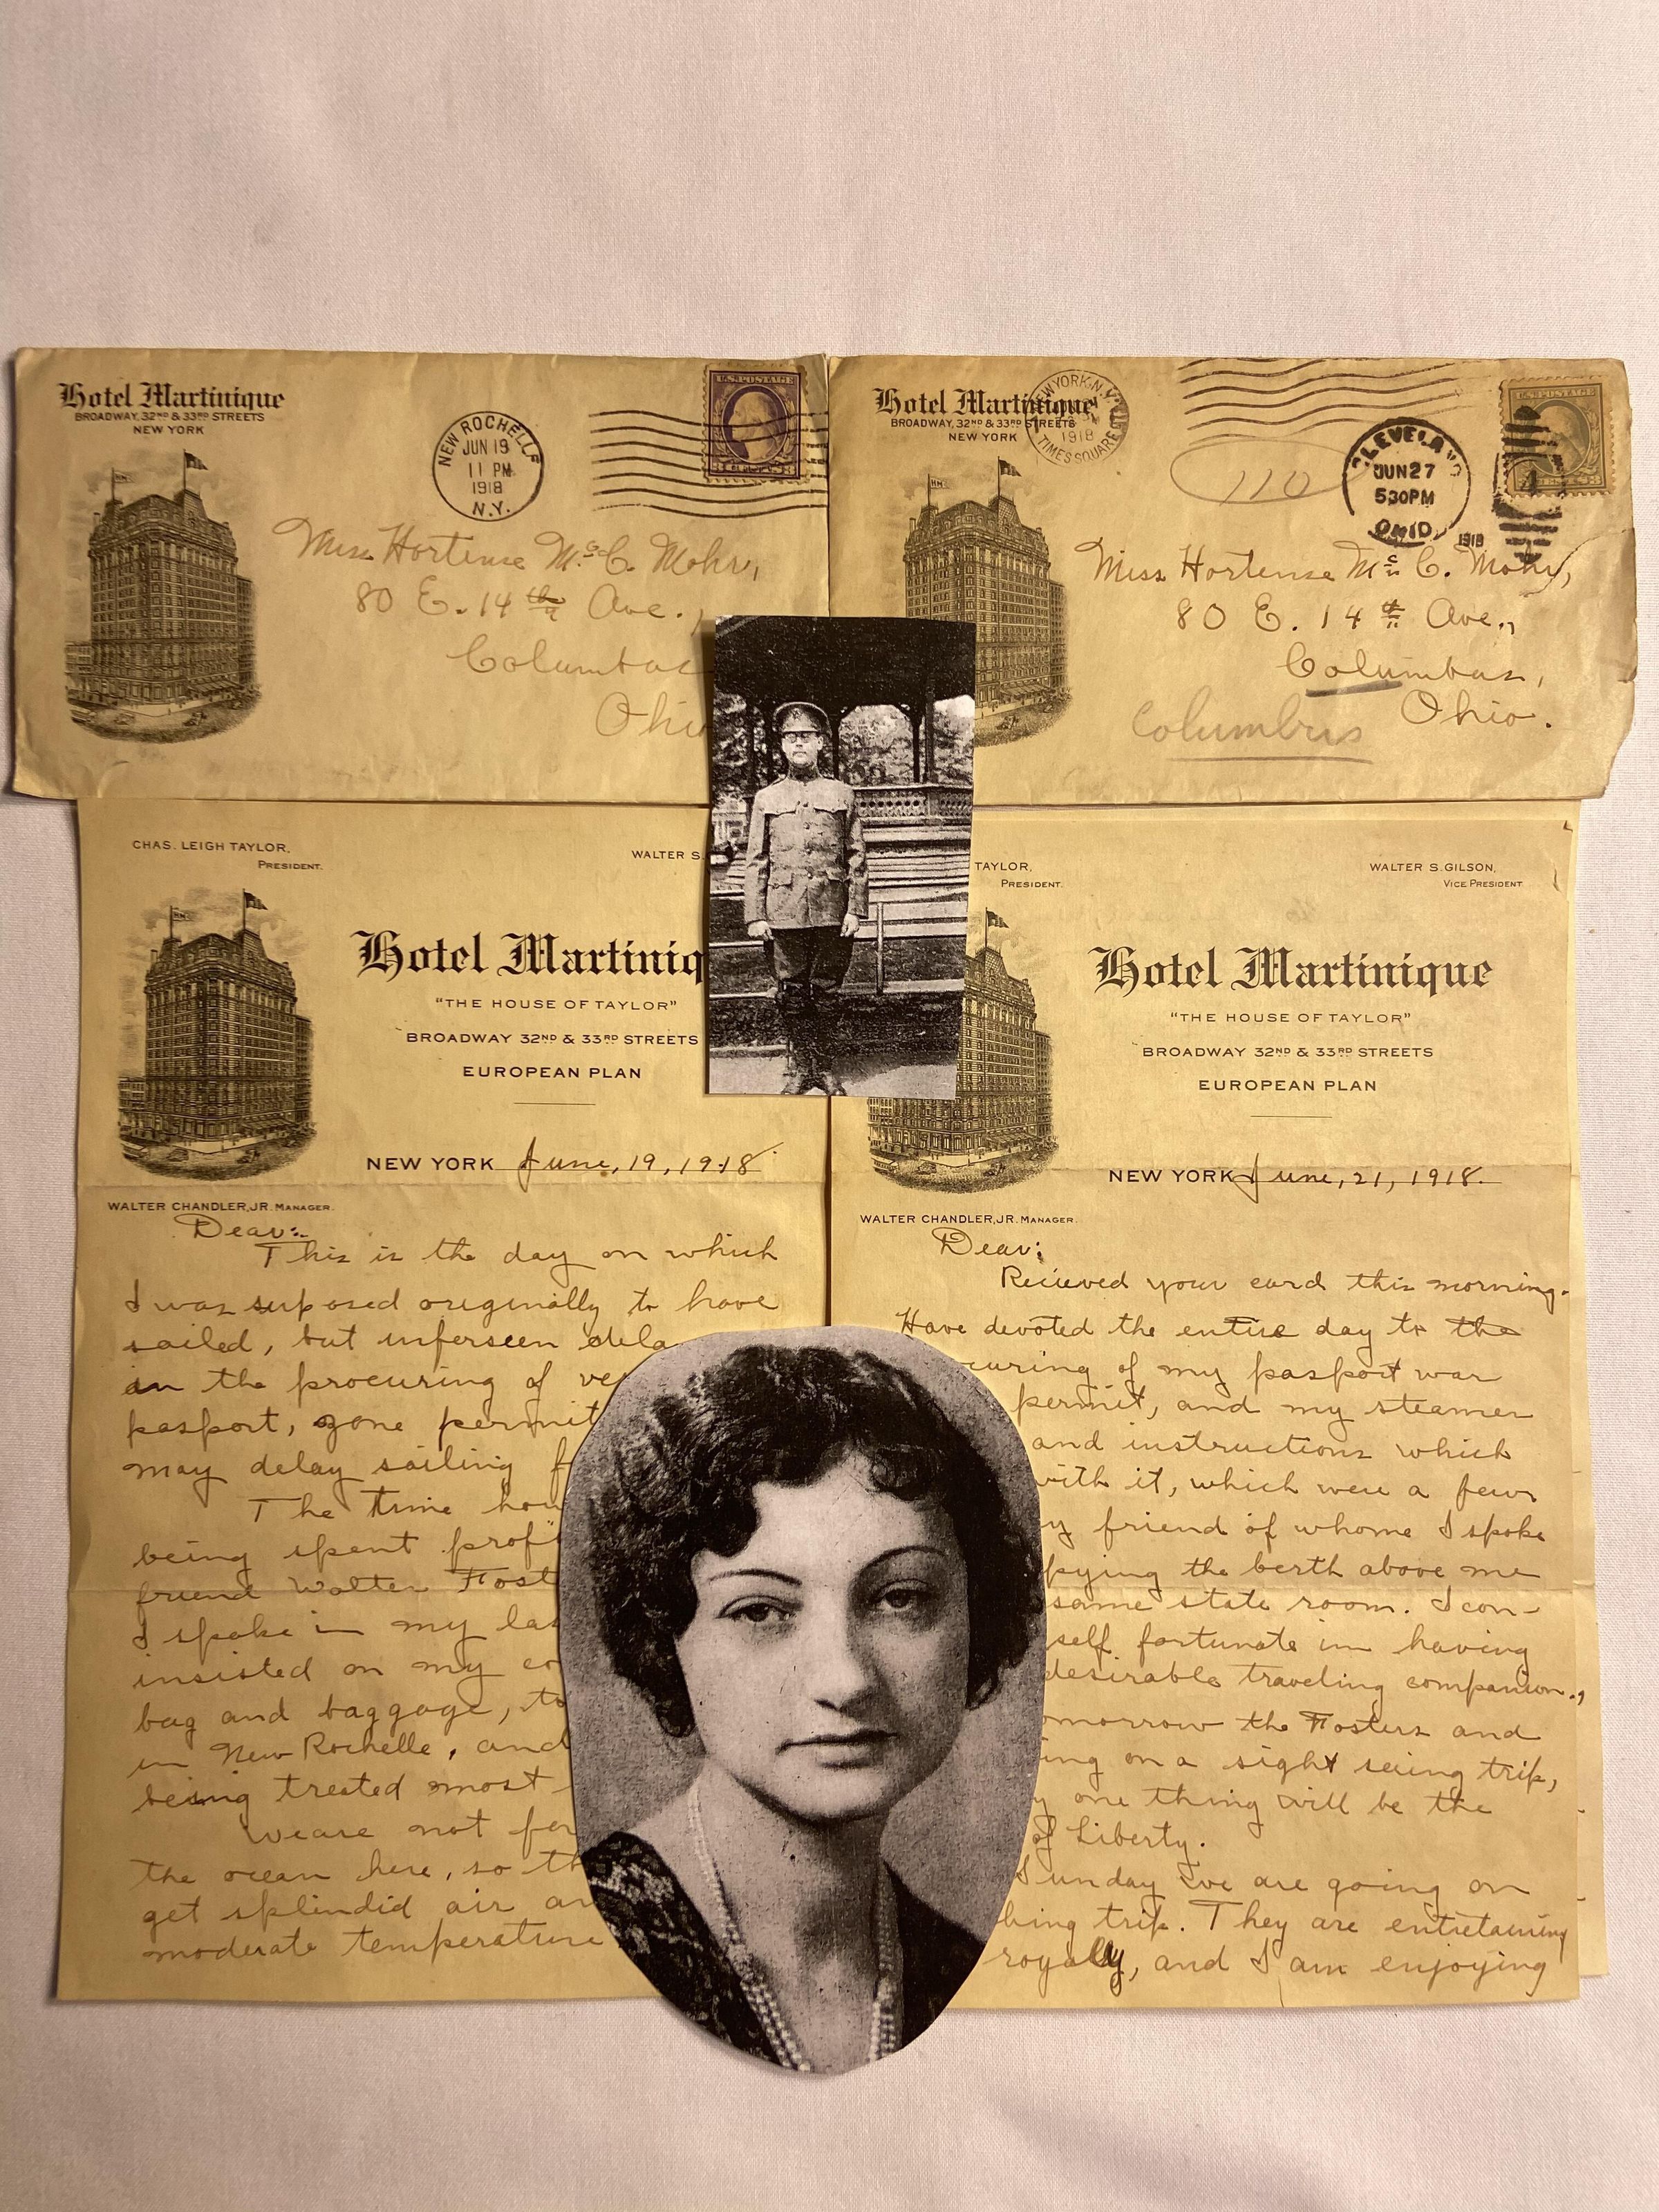 Hotel Martinique
BROADWAY, 32ND & 33RD STREETS
NEW YORK
NEW ROCHELLE
JUN 19
11 PM
1918
N.Y.
U.S. POSTAGE
Miss Hortense Mc. C. Mohr,
80 E. 14th Ave.,
Columbus
Ohio
Hotel Martinique
BROADWAY, 32ND & 33RD STREETS
NEW YORK
NEW YORK, N.Y.
1918
TIMES SQUARE
110
CLEVELAND
JUN 27
530PM
OHIO
1918
U.S. POSTAGE
Miss Hortense Mc. C. Mohr,
80 E. 14th Ave.,
Columbus,
Ohio.
Columbus
CHAS. LEIGH TAYLOR,
PRESIDENT.
WALTER S.
Hotel Martiniq
"THE HOUSE OF TAYLOR"
BROADWAY 32ND & 33RD STREETS
EUROPEAN PLAN
NEW YORK June, 19, 1918
WALTER CHANDLER, JR. MANAGER.
Dear:
This is the day on which
I was suposed originally to have
sailed, but unferseen dela
in the procuring of
pasport, zone permit
may delay sailing f
The time
being spent prof
friend Walter Fost
I spoke in my las
insisted on my co
bag and baggage, to
in New Rochelle, and
being treated most
We are not fer
the ocean here, so th
get splindid air an
moderate temperature
TAYLOR,
PRESIDENT.
WALTER S. GILSON,
VICE PRESIDENT
Hotel Martinique
"THE HOUSE OF TAYLOR"
BROADWAY 32ND & 33RD STREETS
EUROPEAN PLAN
NEW YORK June, 21, 1918.
WALTER CHANDLER, JR. MANAGER.
Dear:
Recieved your card this morning.
Have devoted the entire day to the
curing of my pasport war
permit, and my steamer
and instructions which
with it, which were a few
y friend of whome I spoke
pying the berth above me
same state room. I con-
self fortunate in having
desirable traveling companion.,
omorrow the Fosters and
ing on a sight seing trip,
y one thing will be the
of Liberty.
Sunday we are going on
hing trip. They are entretaining
royally, and I am enjoying